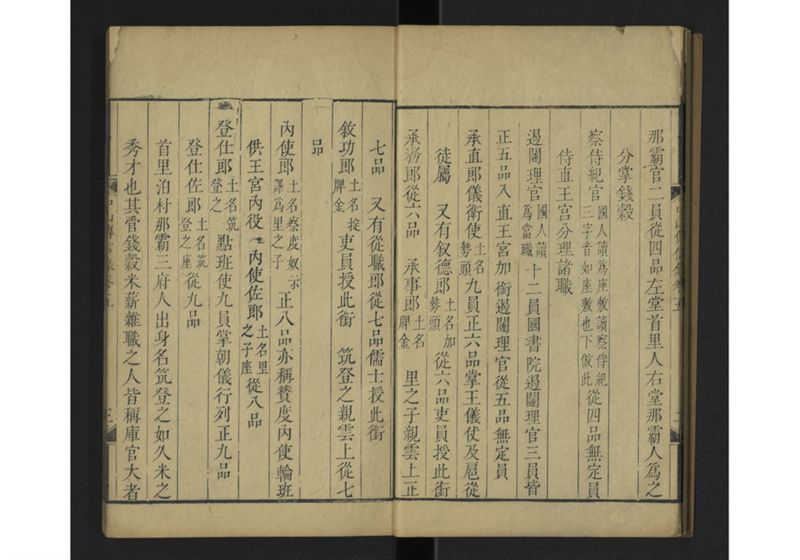 那霸官二員從四品左堂首里人右堂那霸人爲之
分掌錢穀
察侍紀官國人讀爲座敷讀察侍紀三字音如座敷也下倣此從四品無定員
侍直王宮分理諸職
遏闥理官國人讀爲當職十二員國書院遏闥理官三員皆
正五品入直王宮加銜遏闥理官從五品無定員
承直郎儀衛使土名勢頭九員正六品掌王儀仗及扈從
徒屬 又有叙德郎土名加勢頭從六品吏員授此銜
承務郎從六品 承事郎土名牌金 里之子親雲上正
七品 又有從職郎從七品儒士授此銜
敘功郎土名掟牌金 吏員授此銜 筑登之親雲上從七
品
內使郎土名察度奴示譯爲里之子 正八品亦稱賛度內使輪班
供王宮內役 內使佐郎土名里之子座從八品
登仕郎土名筑登之 點班使九員掌朝儀行列正九品
登仕佐郎土名筑登之座從九品
首里泊村那霸三府人出身名筑登之如久米之
秀才也其管錢穀米薪雜職之人皆稱庫官大者
中山傳信錄卷五
三